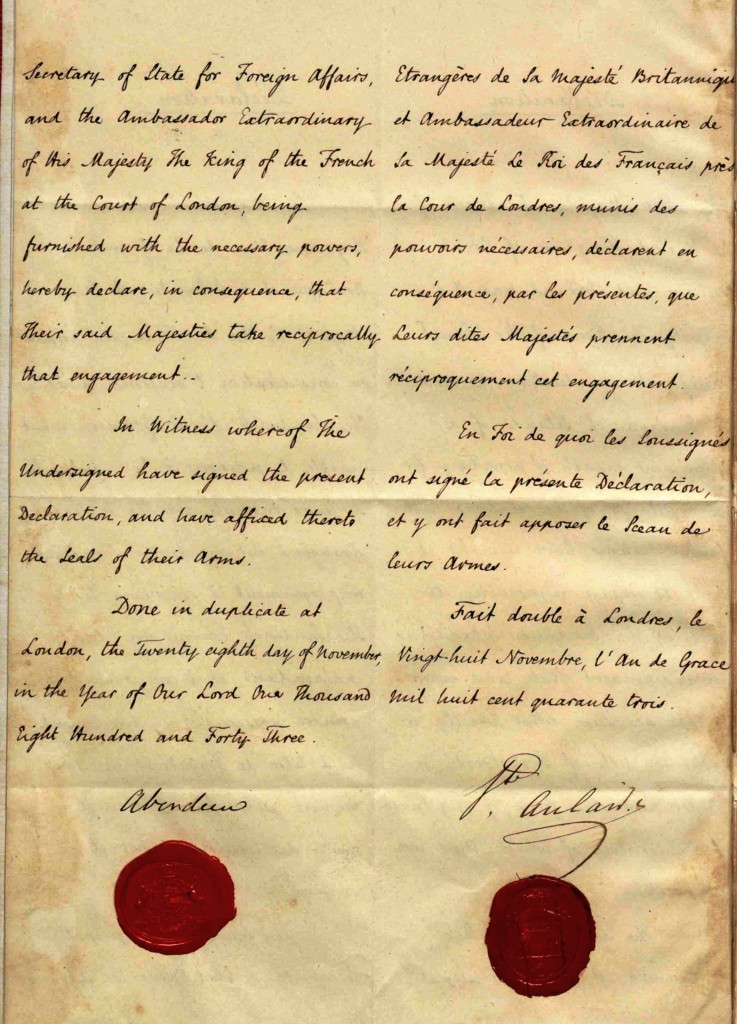 Secretary of State for Foreign Affairs,
and the Ambassador Extraordinary
of His Majesty The King of the French
at the Court of London, being
furnished with the necessary powers,
hereby declare, in consequence, that
Their said Majesties take reciprocally
that engagement..
In Witness whereof The
Undersigned have signed the present
Declaration, and have affixed thereto
the Seals of their Arms.
Done in duplicate at
London, the Twenty eighth day of November,
in the Year of Our Lord One Thousand
Eight Hundred and Forty Three.
Aberdeen
Etrangères de Sa Majesté Britannique
et Ambassadeur Extraordinaire de
Sa Majesté Le Roi des Français près
la Cour de Londres, munis des
pouvoirs nécessaires, déclarent en
conséquence, par les présentes, que
Leurs dites Majestés prennent
réciproquement cet engagement.
En Foi de quoi les Soussignés
ont signé la présente Déclaration,
et y ont fait apposer le Sceau de
leurs Armes.
Fait double à Londres, le
Vingt-huit Novembre, l'An de Grace
Mil huit cent quarante trois.
Ste
Aulaire